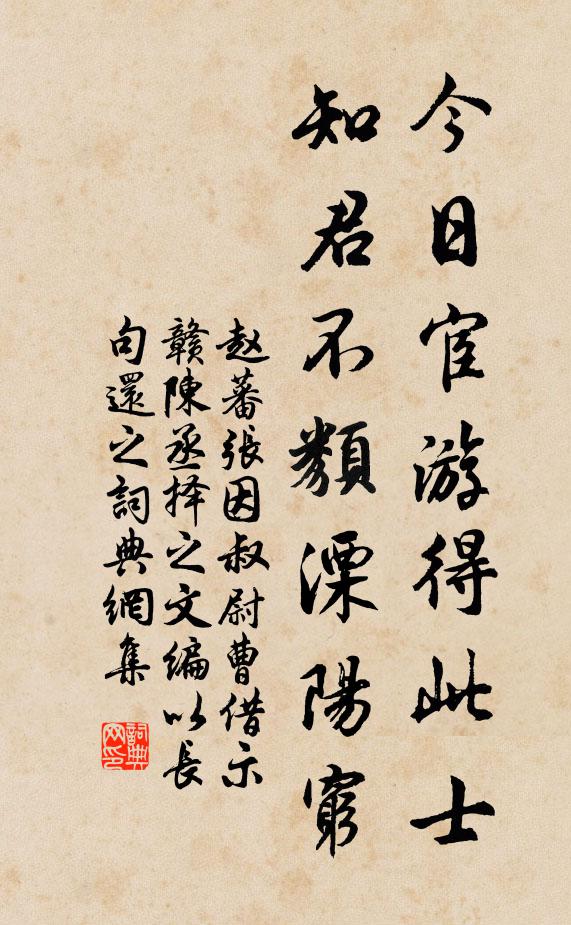 今日宦游得此士
知君不類溧陽窮
赵蕃張因叔尉曹借示
贛陳丞择之文编以長
句還之詞典網集
詞典网印